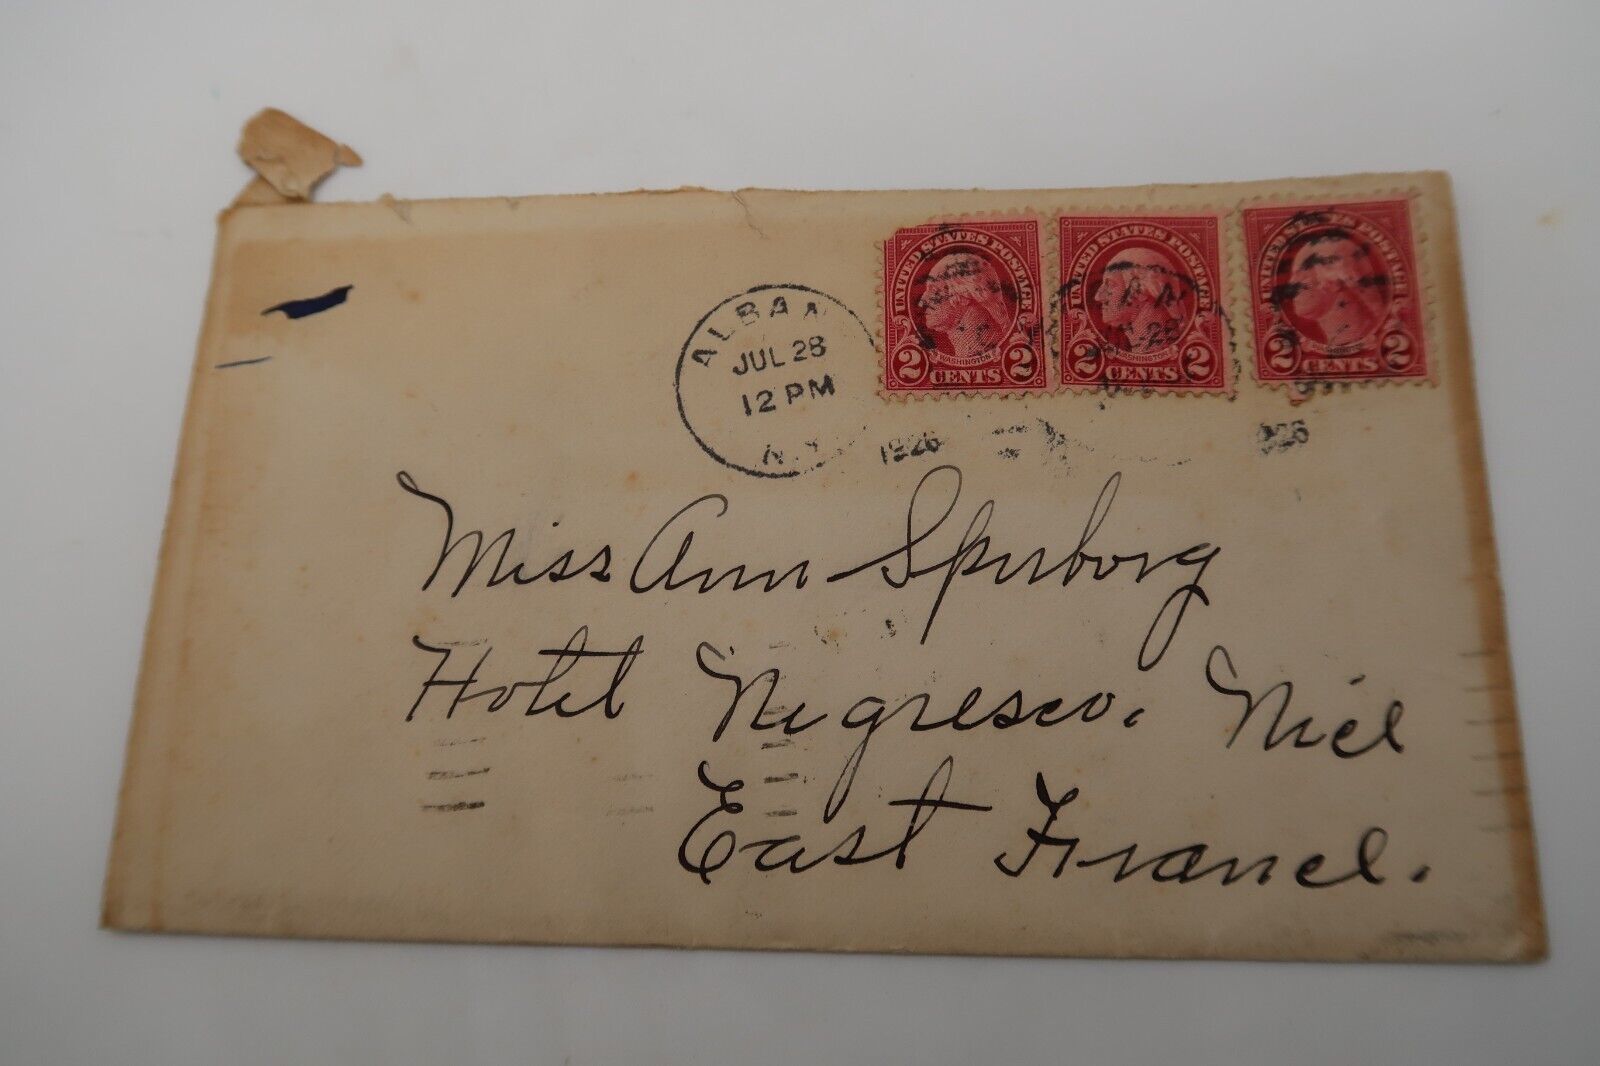 UNITED STATES POSTAGE UNITED STATES POSTAGE UNITED STATES POSTAGE
WASHINGTON WASHINGTON
2 CENTS 2 2 CENTS 2 2 2
ALBANY
JUL 28
12 PM
N.Y.
1926 1926
Miss Ann Spurborg
Hotel Negresco. Nice
East France.